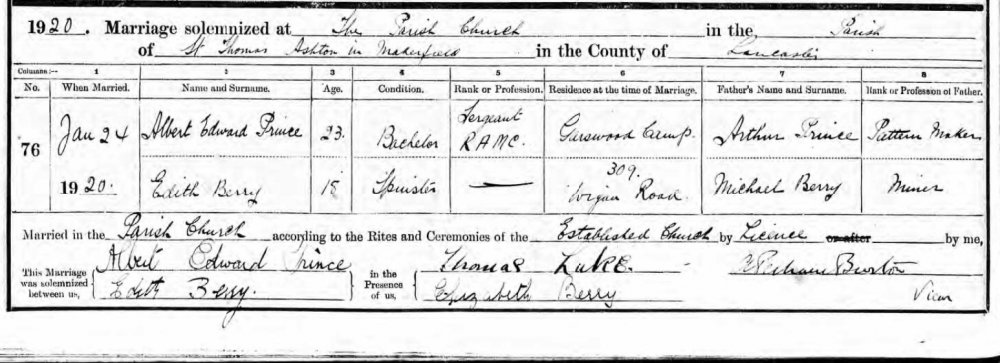 1920. Marriage solemnized at The Parish Church in the Parish
of St Thomas Ashton in Makerfield in the County of Lancaster
Columns:— 1 2 3 4 5 6 7 8
No. When Married. Name and Surname. Age. Condition. Rank or Profession. Residence at the time of Marriage. Father's Name and Surname. Rank or Profession of Father.
76 Jan 24 Albert Edward Prince 23. Bachelor Sergeant R A M C. Garswood Camp. Arthur Prince Pattern Maker
1920. Edith Berry 18 Spinster — 309. Wigan Road. Michael Berry Miner
Married in the Parish Church according to the Rites and Ceremonies of the Established Church by Licence or after by me,
This Marriage was solemnized between us, Albert Edward Prince in the Presence of us, Thomas Burton
Edith Berry. Elizabeth Berry Vicar